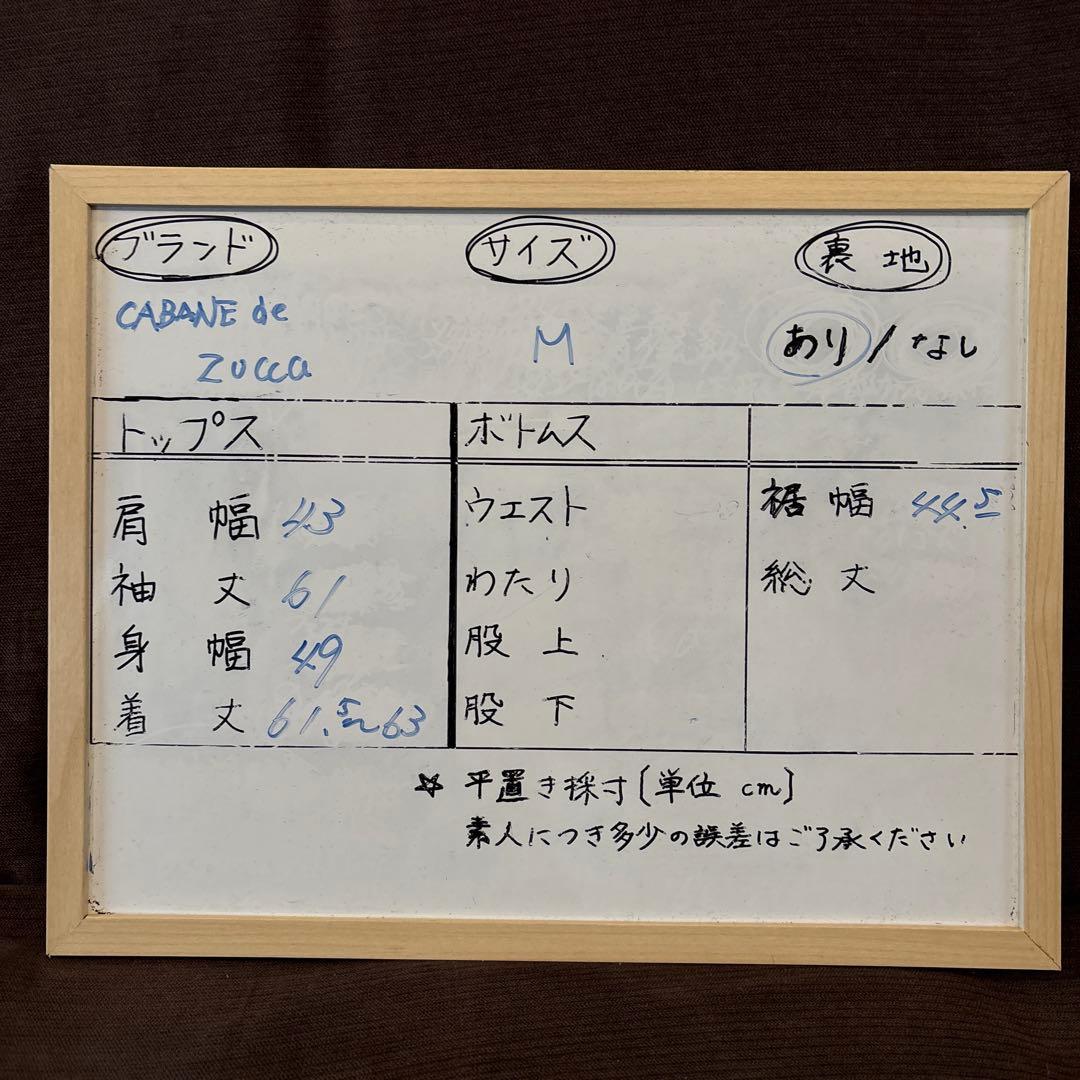 ブランド サイズ 裏地
CABANE de
ZUCCa M あり/なし
トップス ボトムス
肩幅 43 ウエスト 裾幅 44.5
袖丈 61 わたり 総丈
身幅 49 股上
着丈 61.5〜63 股下
☆ 平置き採寸〔単位 cm〕
素人につき多少の誤差はご了承ください